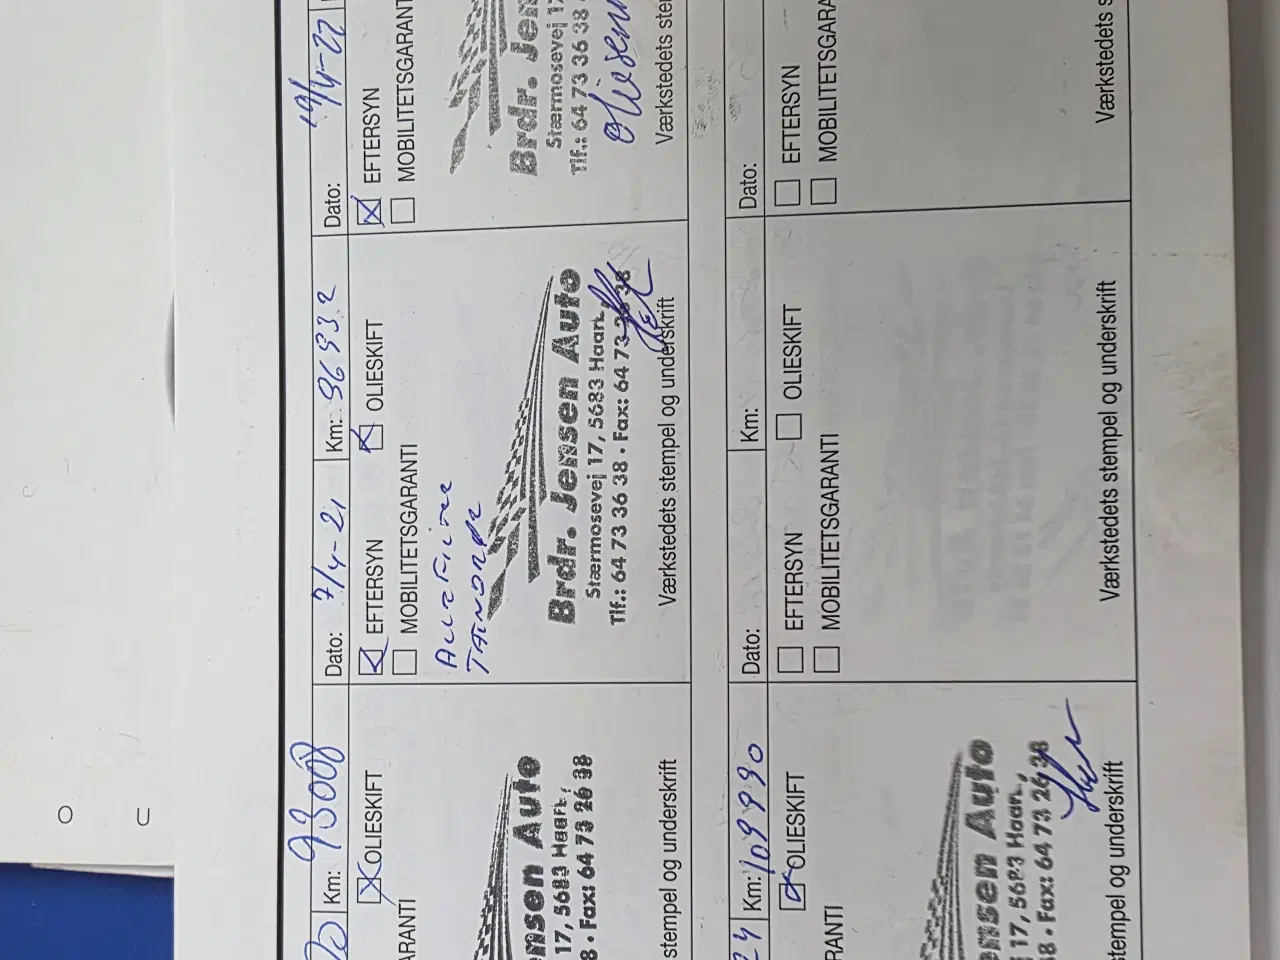 Km: 93008
OLIESKIFT
ARANTI
ensen Auto
17, 5683 Haarh,
8 • Fax: 64 73 26 38
stempel og underskrift
Dato: 7/4-21 Km: 96932
EFTERSYN OLIESKIFT
MOBILITETSGARANTI
ALLE FILTRE
TÆNDRØR
Brdr. Jensen Auto
Stærmosevej 17, 5683 Haarh,
Tlf.: 64 73 36 38 • Fax: 64 73 26 38
Værkstedets stempel og underskrift
Dato: 19/4-22
EFTERSYN
MOBILITETSGARANT
Brdr. Jen
Stærmosevej 17
Tlf.: 64 73 36 38 •
Værkstedets ste
24 Km: 109990
OLIESKIFT
RANTI
ensen Auto
17, 5683 Haarh,
8 • Fax: 64 73 26 38
stempel og underskrift
Dato: Km:
EFTERSYN OLIESKIFT
MOBILITETSGARANTI
Værkstedets stempel og underskrift
Dato:
EFTERSYN
MOBILITETSGARA
Værkstedets s